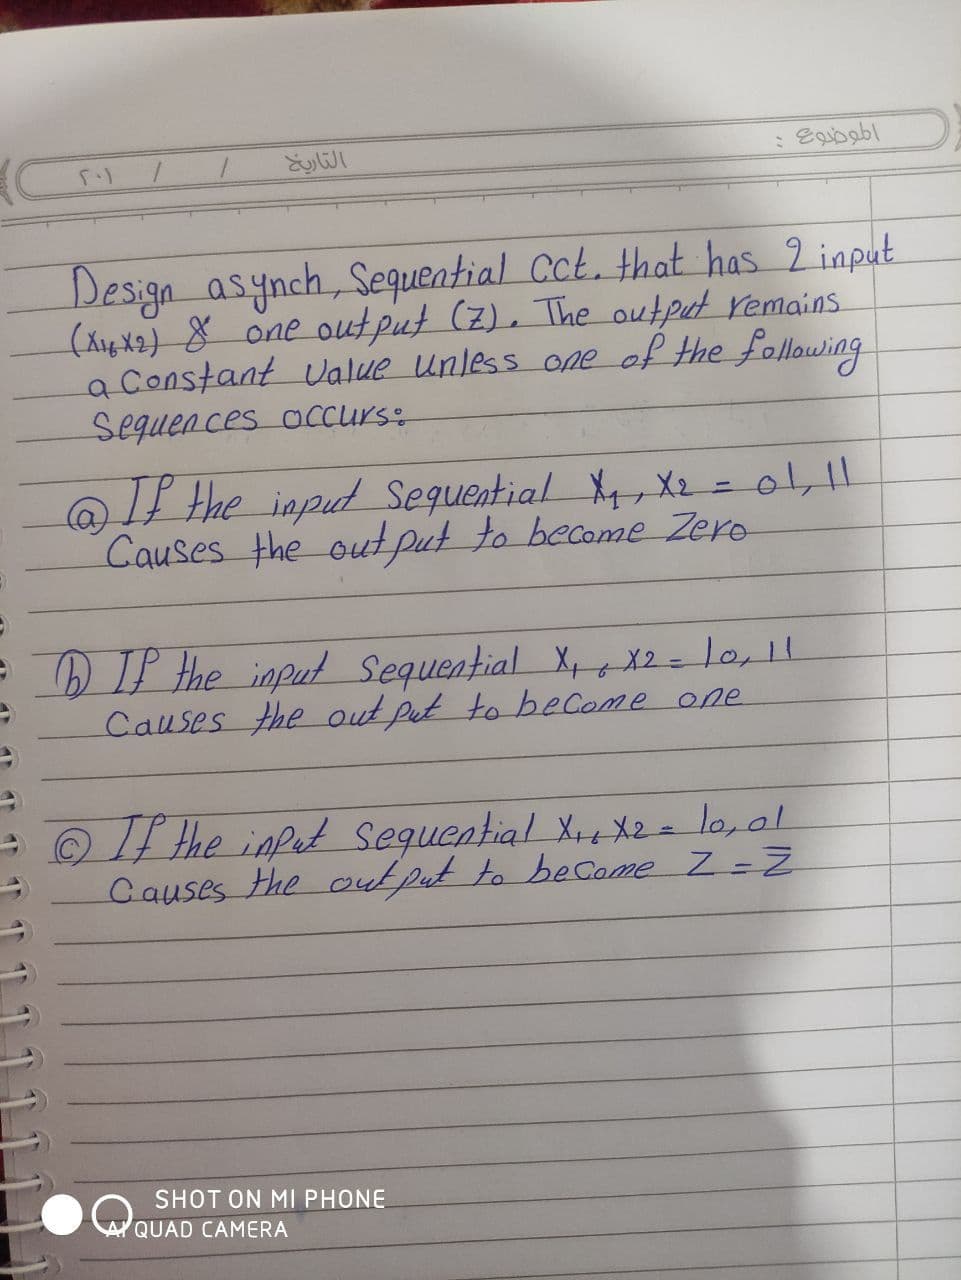 الموضوع :
التاريخ / / ٢٠١
Design asynch, Sequential cct. that has 2 input
(X1, X2) & one output (Z). The output remains
a Constant Value unless one of the following
Sequences occurs:
ⓐ If the input Sequential X1, X2 = 01, 11
Causes the output to become Zero
ⓑ If the input Sequential X1, X2 = 10, 11
Causes the output to become one
ⓒ If the input Sequential X1, X2 = 10, 01
Causes the output to become Z = Z̅
SHOT ON MI PHONE
AI QUAD CAMERA